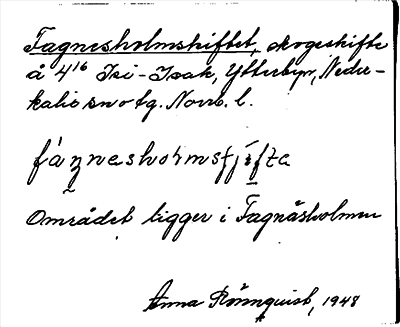 Fagnesholmskiftet, skogsskifte
å 4¹⁶ Isi-Isak, Ytterbyn, Neder-
kalix sn o tg. Norrb. l.
fáŋnesholmsʃífta
Området ligger i Fagnåsholmen
Anna Rönnquist, 1948